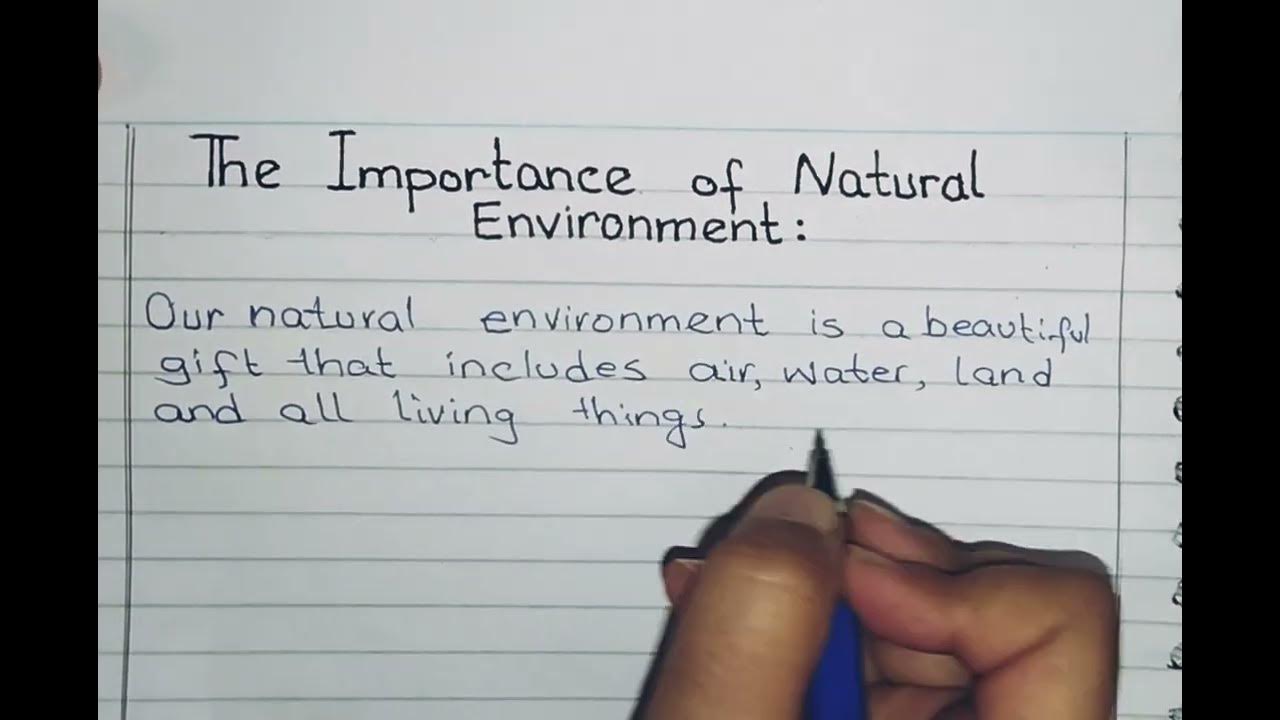 The Importance of Natural
Environment:
Our natural environment is a beautiful
gift that includes air, water, land
and all living things.